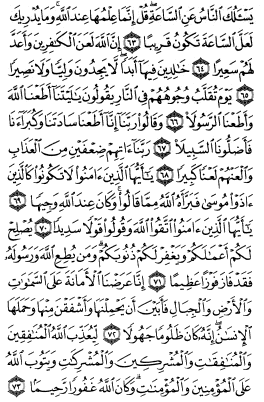 يَسْـَٔلُكَ ٱلنَّاسُ عَنِ ٱلسَّاعَةِ قُلْ إِنَّمَا عِلْمُهَا عِندَ ٱللَّهِ وَمَا يُدْرِيكَ
لَعَلَّ ٱلسَّاعَةَ تَكُونُ قَرِيبًا ٦٣ إِنَّ ٱللَّهَ لَعَنَ ٱلْكَٰفِرِينَ وَأَعَدَّ
لَهُمْ سَعِيرًا ٦٤ خَٰلِدِينَ فِيهَآ أَبَدًا لَّا يَجِدُونَ وَلِيًّا وَلَا نَصِيرًا
٦٥ يَوْمَ تُقَلَّبُ وُجُوهُهُمْ فِى ٱلنَّارِ يَقُولُونَ يَٰلَيْتَنَآ أَطَعْنَا ٱللَّهَ
وَأَطَعْنَا ٱلرَّسُولَا۠ ٦٦ وَقَالُوا۟ رَبَّنَآ إِنَّآ أَطَعْنَا سَادَتَنَا وَكُبَرَآءَنَا
فَأَضَلُّونَا ٱلسَّبِيلَا۠ ٦٧ رَبَّنَآ ءَاتِهِمْ ضِعْفَيْنِ مِنَ ٱلْعَذَابِ
وَٱلْعَنْهُمْ لَعْنًا كَبِيرًا ٦٨ يَٰٓأَيُّهَا ٱلَّذِينَ ءَامَنُوا۟ لَا تَكُونُوا۟ كَٱلَّذِينَ
ءَاذَوْا۟ مُوسَىٰ فَبَرَّأَهُ ٱللَّهُ مِمَّا قَالُوا۟ وَكَانَ عِندَ ٱللَّهِ وَجِيهًا ٦٩
يَٰٓأَيُّهَا ٱلَّذِينَ ءَامَنُوا۟ ٱتَّقُوا۟ ٱللَّهَ وَقُولُوا۟ قَوْلًا سَدِيدًا ٧٠ يُصْلِحْ
لَكُمْ أَعْمَٰلَكُمْ وَيَغْفِرْ لَكُمْ ذُنُوبَكُمْ وَمَن يُطِعِ ٱللَّهَ وَرَسُولَهُۥ
فَقَدْ فَازَ فَوْزًا عَظِيمًا ٧١ إِنَّا عَرَضْنَا ٱلْأَمَانَةَ عَلَى ٱلسَّمَٰوَٰتِ
وَٱلْأَرْضِ وَٱلْجِبَالِ فَأَبَيْنَ أَن يَحْمِلْنَهَا وَأَشْفَقْنَ مِنْهَا وَحَمَلَهَا
ٱلْإِنسَٰنُ إِنَّهُۥ كَانَ ظَلُومًا جَهُولًا ٧٢ لِّيُعَذِّبَ ٱللَّهُ ٱلْمُنَٰفِقِينَ
وَٱلْمُنَٰفِقَٰتِ وَٱلْمُشْرِكِينَ وَٱلْمُشْرِكَٰتِ وَيَتُوبَ ٱللَّهُ
عَلَى ٱلْمُؤْمِنِينَ وَٱلْمُؤْمِنَٰتِ وَكَانَ ٱللَّهُ غَفُورًا رَّحِيمًۢا ٧٣